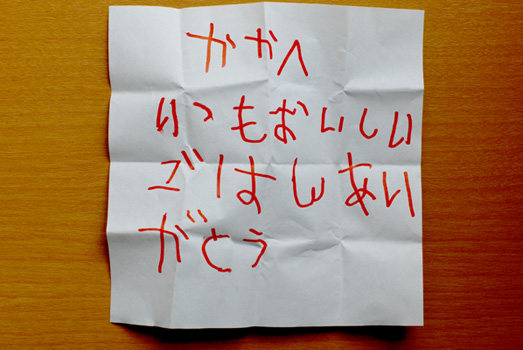 かかへ
いつもおいしい
ごはんあり
がとう